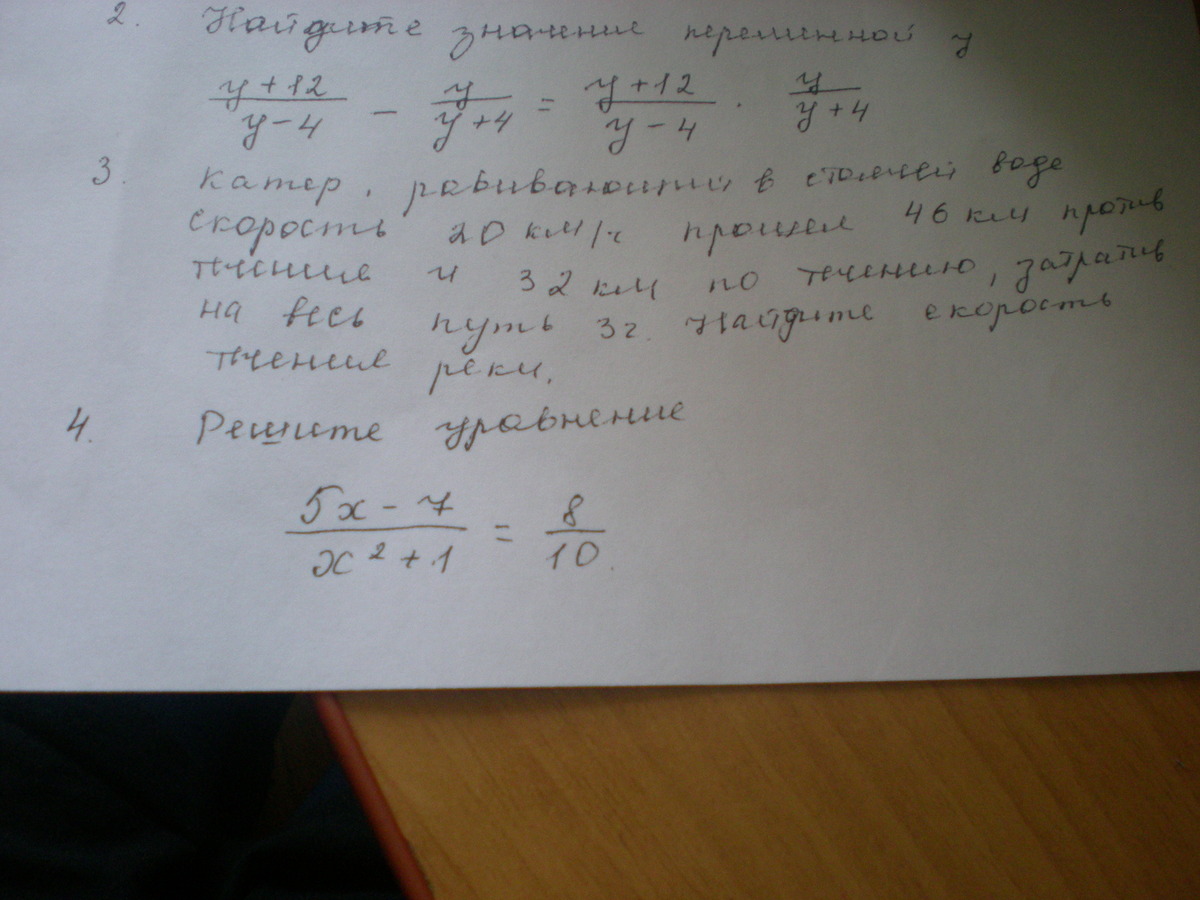 2. Найдите значение переменной y
y+12/y-4 - y/y+4 = y+12/y-4 · y/y+4
3. Катер, развивающий в стоячей воде
скорость 20 км/ч прошел 46 км против
течение и 32 км по течению, затратив
на весь путь 3ч. Найдите скорость
течения реки.
4. Решите уравнение
5x-7/x²+1 = 8/10.